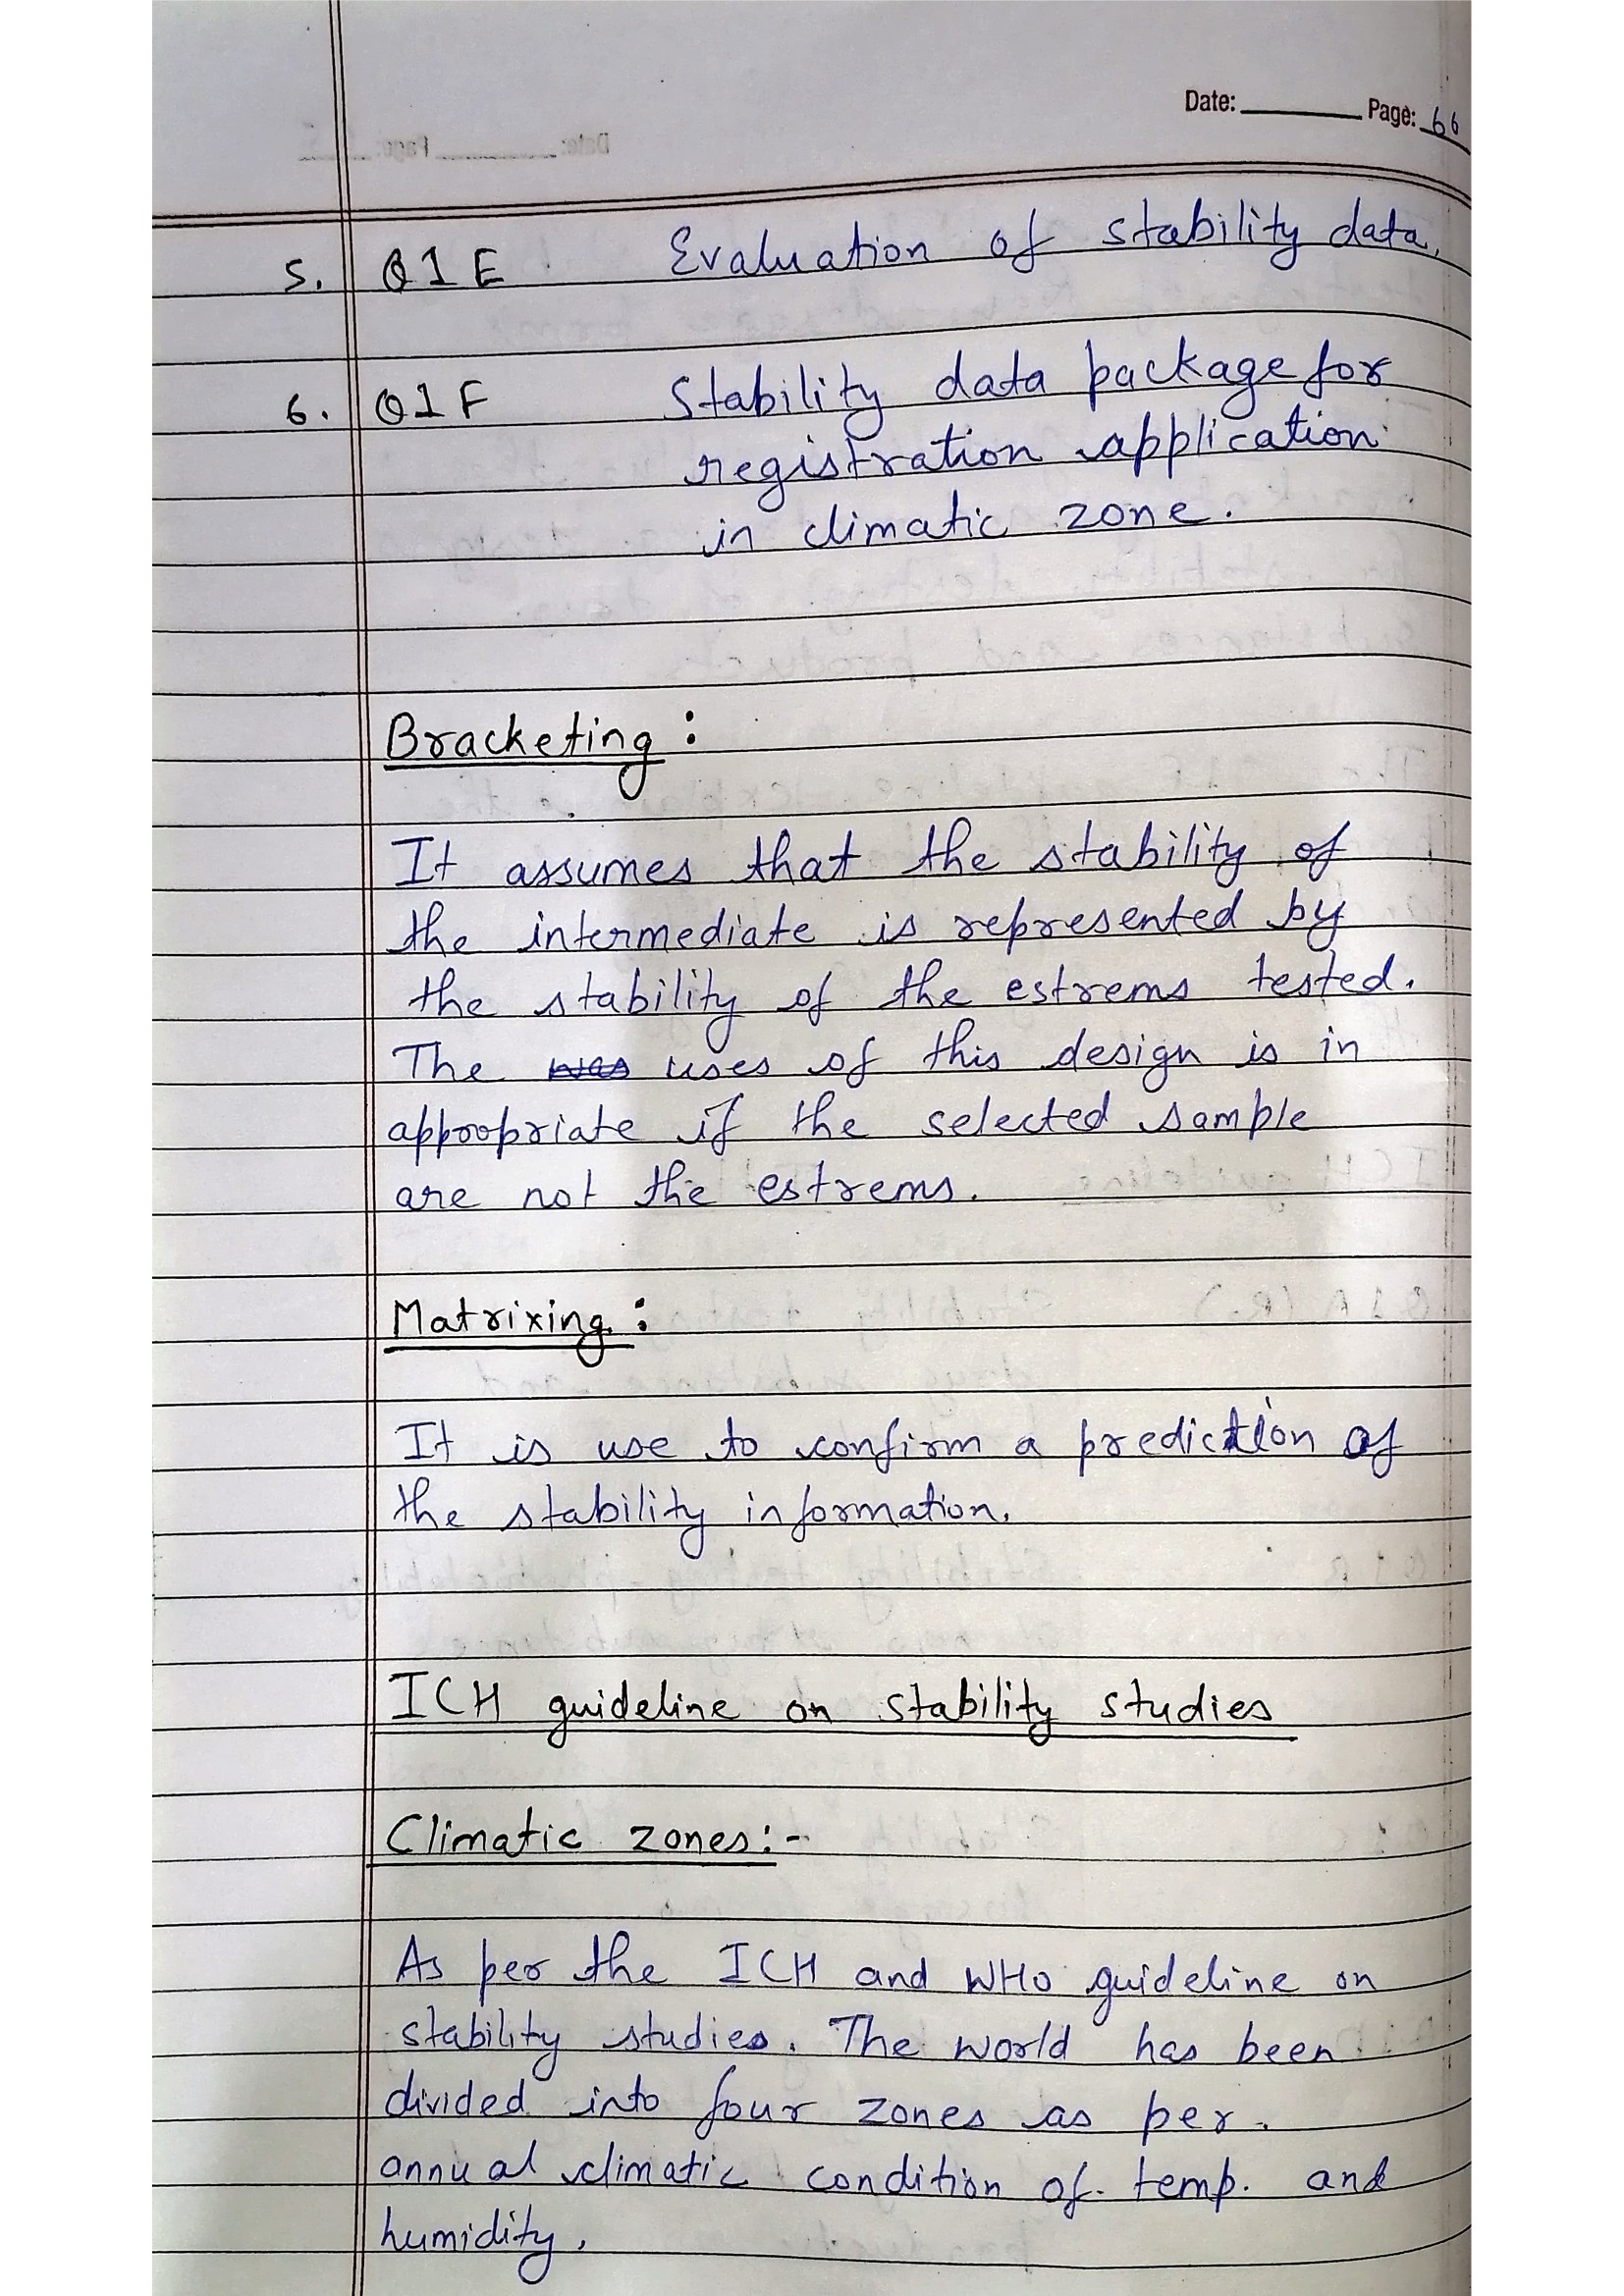 Date: Page: 66
5. Q1E Evaluation of stability data.
6. Q1F Stability data package for
registration application
in climatic zone.
Bracketing :
It assumes that the stability of
the intermediate is represented by
the stability of the estrems tested.
The was uses of this design is in
appropriate if the selected sample
are not the estrems.
Matrixing :
It is use to confirm a prediction of
the stability information.
ICH guideline on stability studies
Climatic zones:-
As per the ICH and WHO guideline on
stability studies. The world has been
divided into four zones as per
annual climatic condition of temp. and
humidity.